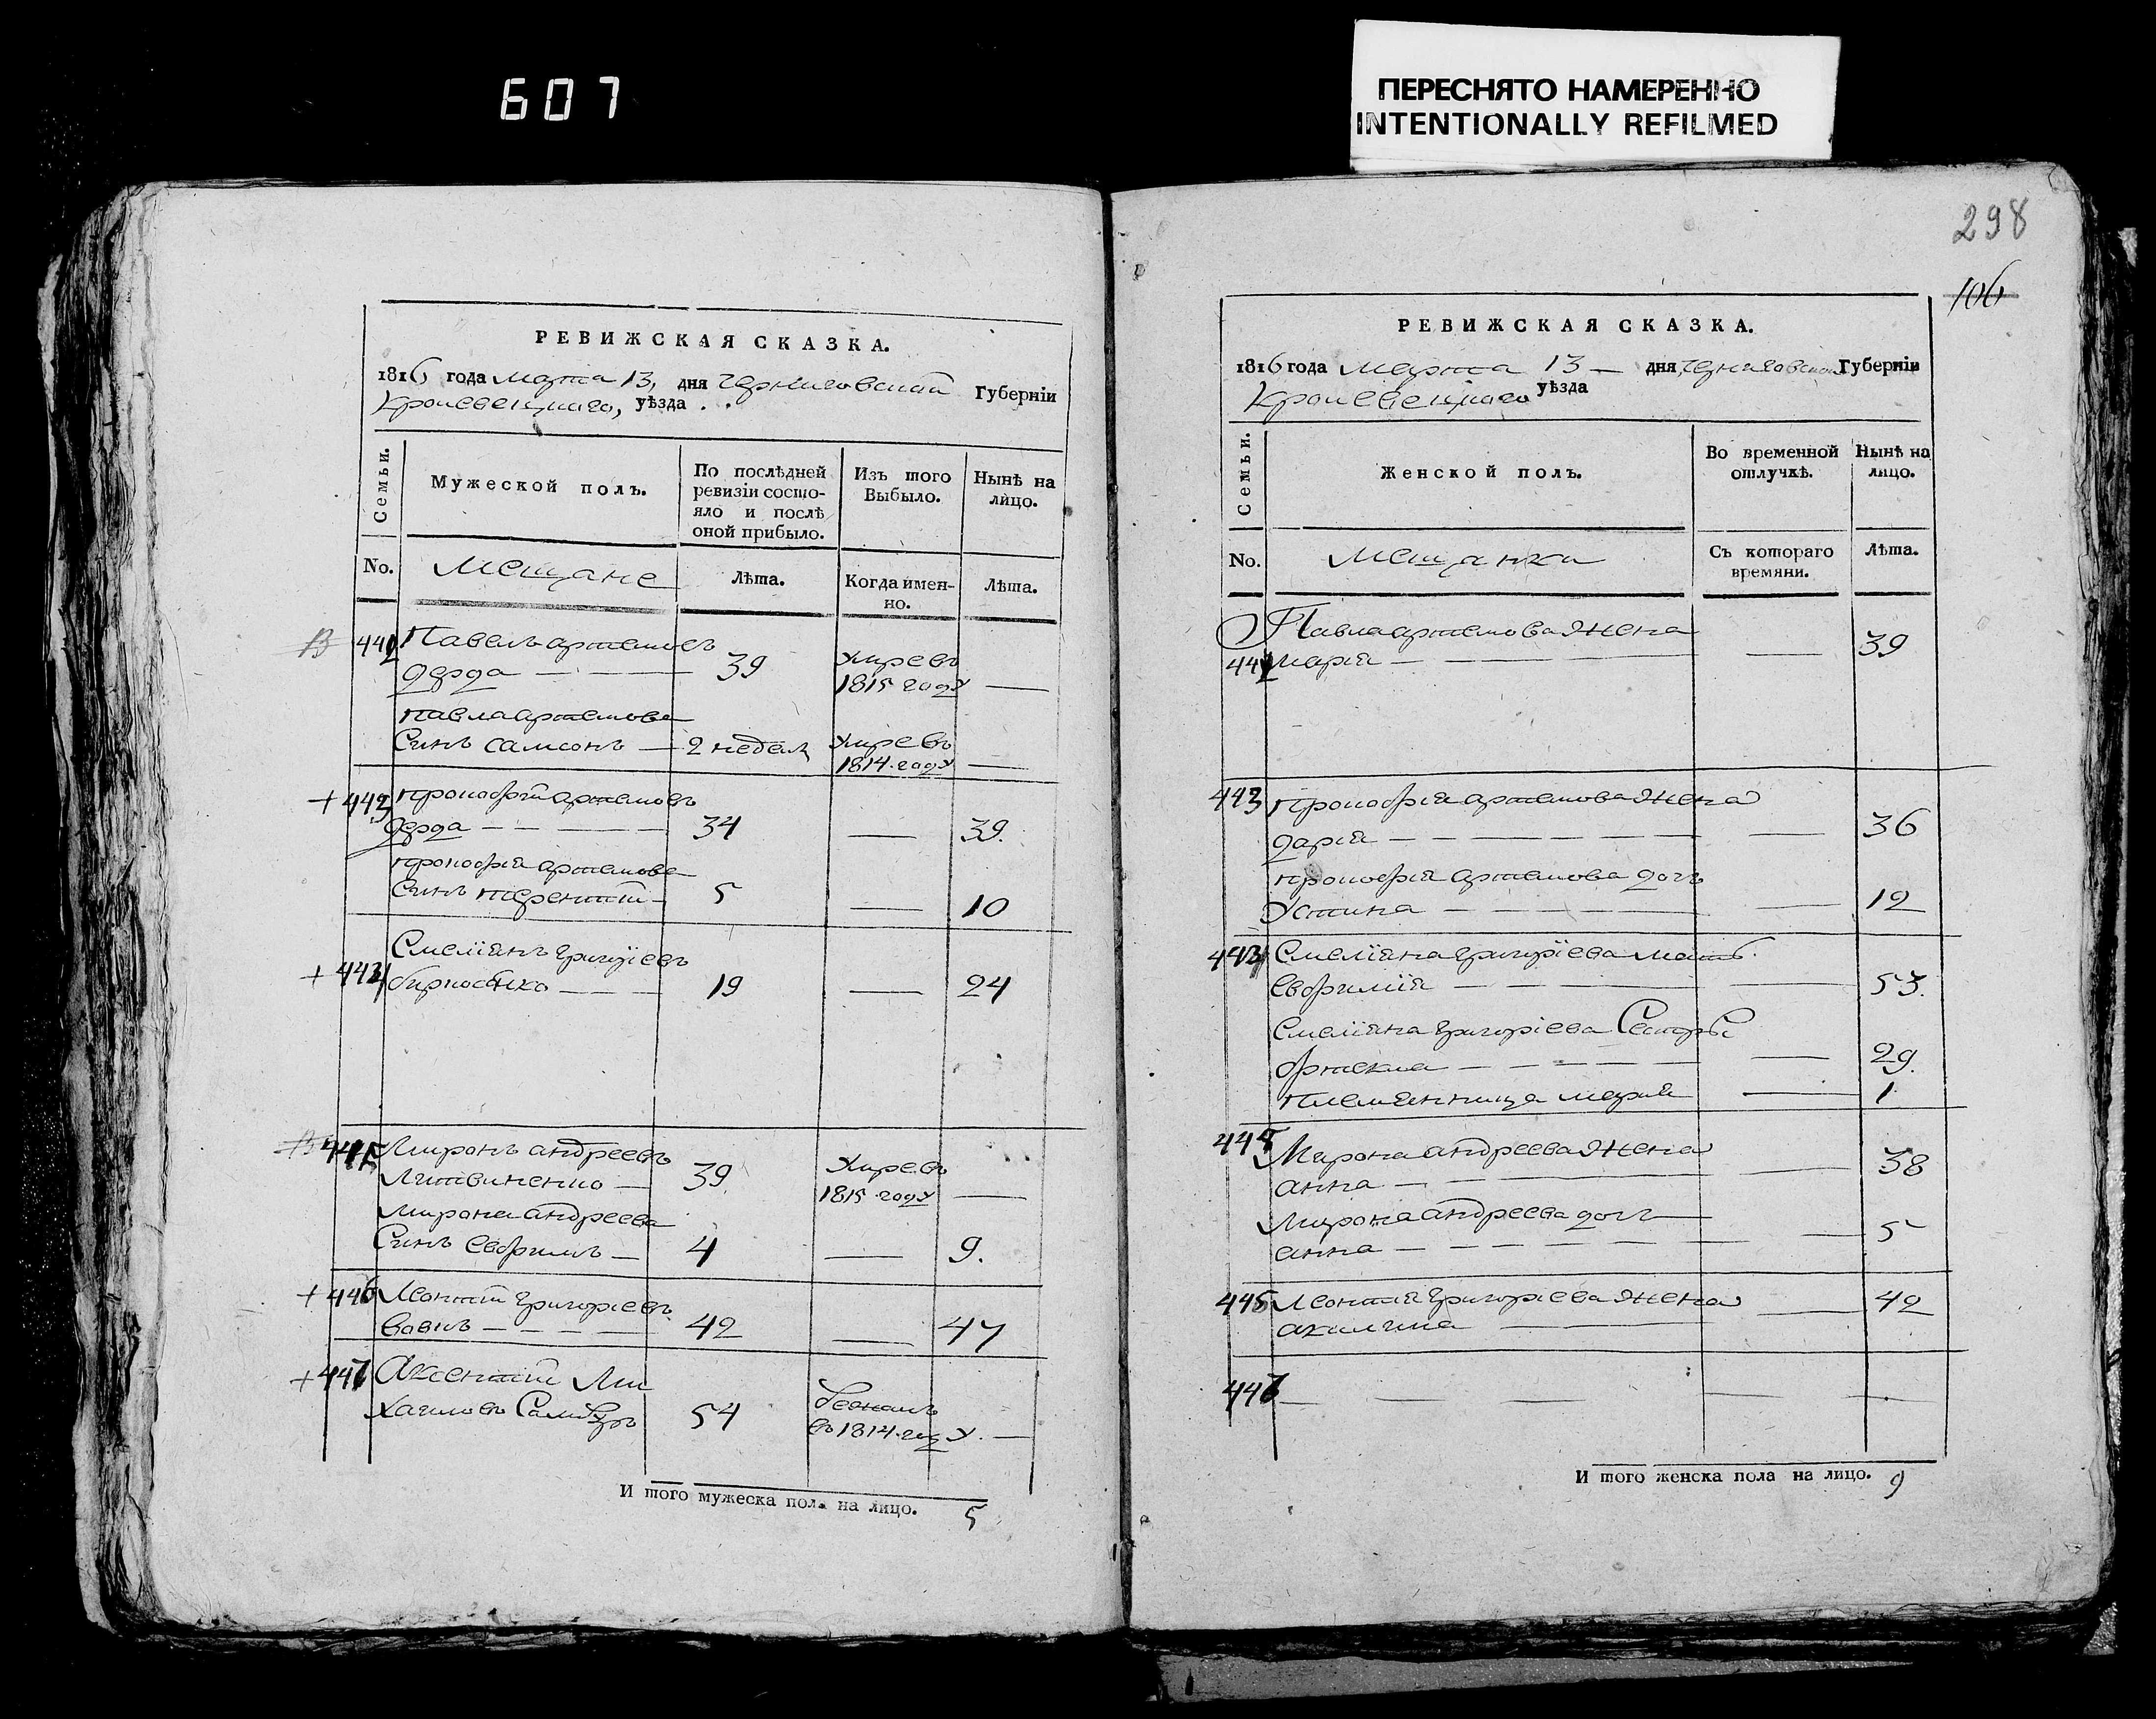 607
ПЕРЕСНЯТО НАМЕРЕННО
INTENTIONALLY REFILMED
РЕВИЖСКАЯ СКАЗКА.
1816 года марта 13, дня черниговской Губерніи
кролевецкаго, уѣзда
Семьи.
Мужеской полъ.
По послѣдней
ревизіи состо-
яло и послѣ
оной прибыло.
Изъ того
Выбыло.
Нынѣ на
лицо.
No.
мещане
Лѣта.
Когда имен-
но.
Лѣта.
442 Павелъ артемовъ
дерда — 39 умре въ
1815 году —
павла артемова
Синъ самсонъ — 2 недели умре въ
1814 году —
+ 443 прокофій артемовъ
дерда — 34 — 39.
прокофія артемова
синъ терентій — 5 — 10
Емеліянъ григоріевъ
+ 444 — 19 — 24
445 Миронъ андреевъ
Литвиненко — 39 умре въ
1815 году —
мирона андреева
Синъ евфимъ — 4 — 9.
+ 446 Леонтій григоріевъ
вовкъ — 42 — 47
+ 447 Аксентій Ми
хайловъ 54
въ 1814 году. —
И того мужеска пола на лицо. 5
298
106
РЕВИЖСКАЯ СКАЗКА.
1816 года марта 13 — дня черниговской Губерніи
кролевецкаго уѣзда
Семьи.
Женской полъ.
Во временной
отлучкѣ.
Нынѣ на
лицо.
No.
мещанки
Съ котораго
времяни.
Лѣта.
Павла артемова жена
442 марія — — 39
443 прокофія артемова жена
дарія — — 36
прокофія артемова дочь
Устина — — 12
444 Емеліяна григоріева мать
евфимія — — 53.
Емеліяна григоріева Сестра
фтекла — — 29.
племянница марія — 1
445 Мирона андреева жена
анна — — 38
Мирона андреева дочь
анна — — 5
446 Леонтія григоріева жена — 42
акилина —
447 — — — — —
И того женска пола на лицо. 9